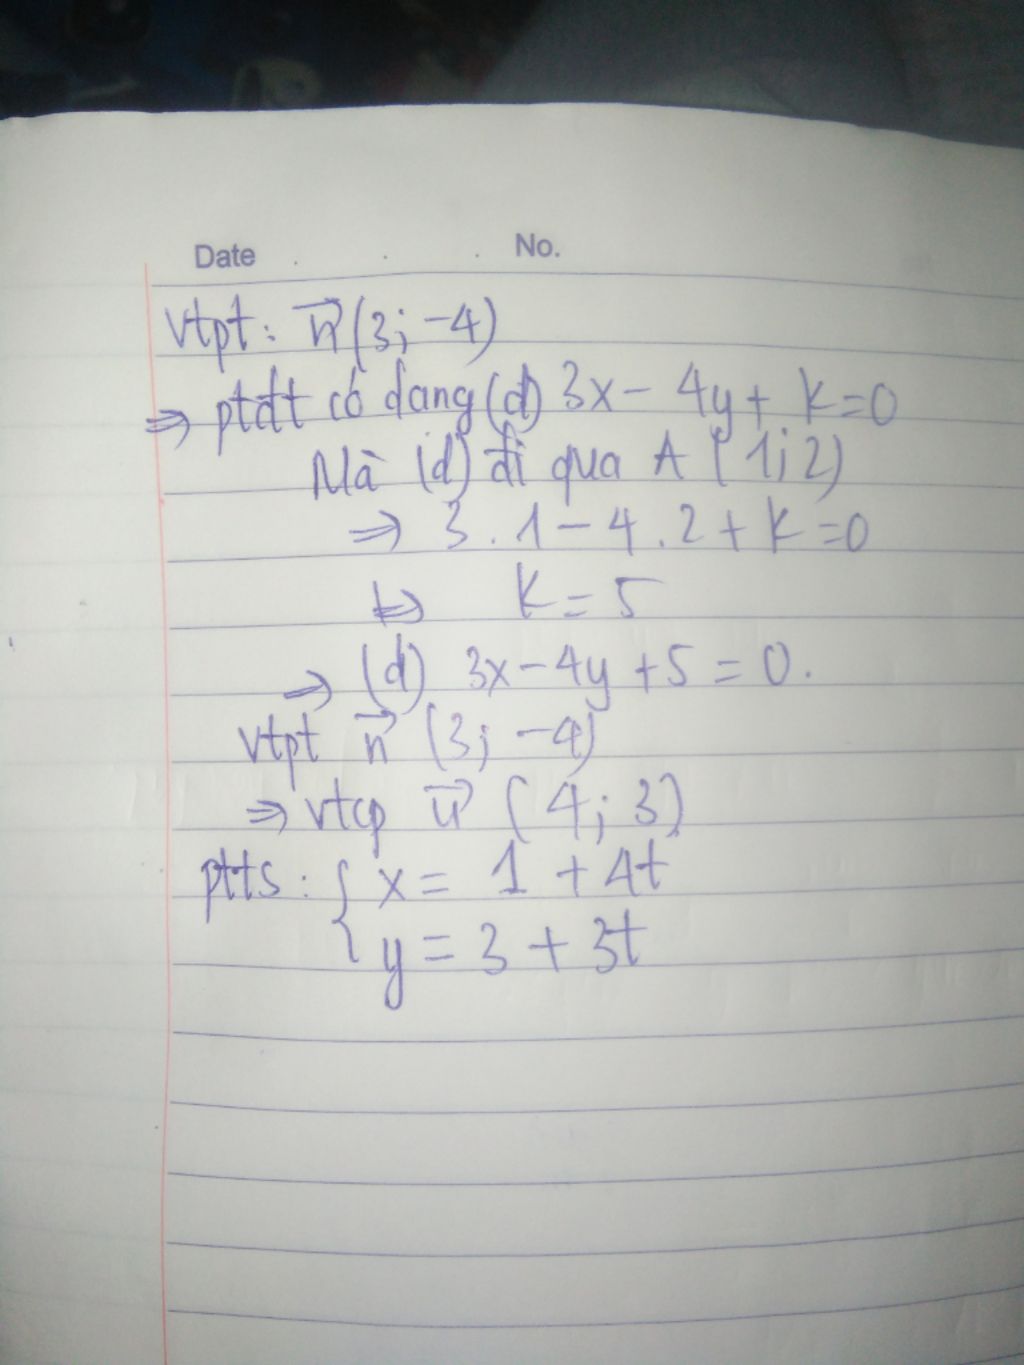 Date No.
vtpt: n⃗(3; -4)
=> ptđt có dang (d) 3x - 4y + k = 0
Mà (d) đi qua A (1; 2)
=> 3 . 1 - 4 . 2 + k = 0
<=> k = 5
=> (d) 3x - 4y + 5 = 0.
vtpt n⃗ (3; -4)
=> vtcp u⃗ (4; 3)
ptts: { x = 1 + 4t
y = 3 + 3t